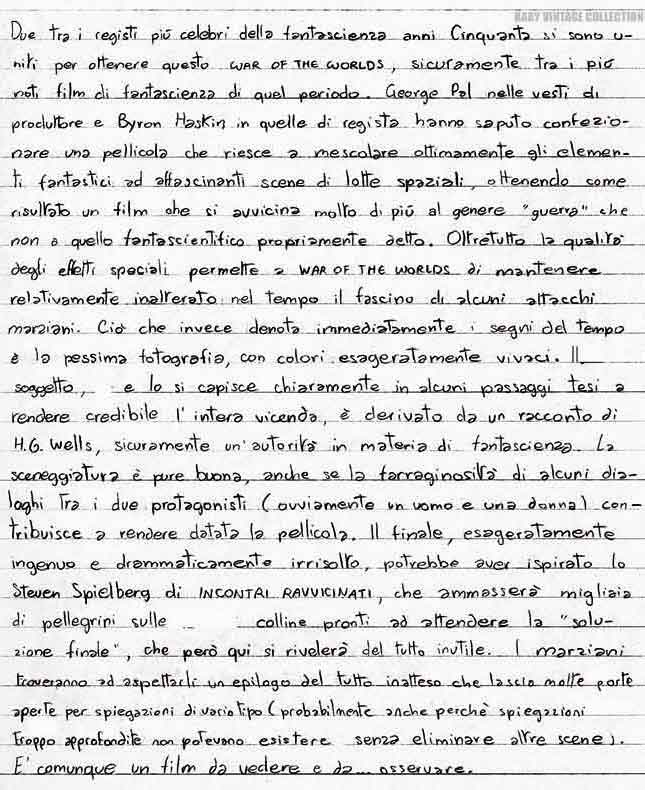 BABY VINTAGE COLLECTION
Due tra i registi più celebri della fantascienza anni Cinquanta si sono u-
niti per ottenere questo WAR OF THE WORLDS, sicuramente tra i più
noti film di fantascienza di quel periodo. George Pal nelle vesti di
produttore e Byron Haskin in quelle di regista hanno saputo confezio-
nare una pellicola che riesce a mescolare ottimamente gli elemen-
ti fantastici ad affascinanti scene di lotte spaziali, ottenendo come
risultato un film che si avvicina molto di più al genere "guerra" che
non a quello fantascientifico propriamente detto. Oltretutto la qualità
degli effetti speciali permette a WAR OF THE WORLDS di mantenere
relativamente inalterato nel tempo il fascino di alcuni attacchi
marziani. Ciò che invece denota immediatamente i segni del tempo
è la pessima fotografia, con colori esageratamente vivaci. Il
soggetto, e lo si capisce chiaramente in alcuni passaggi tesi a
rendere credibile l'intera vicenda, è derivato da un racconto di
H.G. Wells, sicuramente un'autorità in materia di fantascienza. La
sceneggiatura è pure buona, anche se la farraginosità di alcuni dia-
loghi tra i due protagonisti (ovviamente un uomo e una donna) con-
tribuisce a rendere datata la pellicola. Il finale, esageratamente
ingenuo e drammaticamente irrisolto, potrebbe aver ispirato lo
Steven Spielberg di INCONTRI RAVVICINATI, che ammasserà migliaia
di pellegrini sulle colline pronti ad attendere la "solu-
zione finale", che però qui si rivelerà del tutto inutile. I marziani
troveranno ad aspettarli un epilogo del tutto inatteso che lascia molte porte
aperte per spiegazioni di vario tipo (probabilmente anche perchè spiegazioni
troppo approfondite non potevano esistere senza eliminare altre scene).
E' comunque un film da vedere e da... osservare.